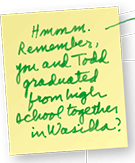 Hmmm.
Remember,
you and Todd
graduated
from high
school together
in Wasilla?